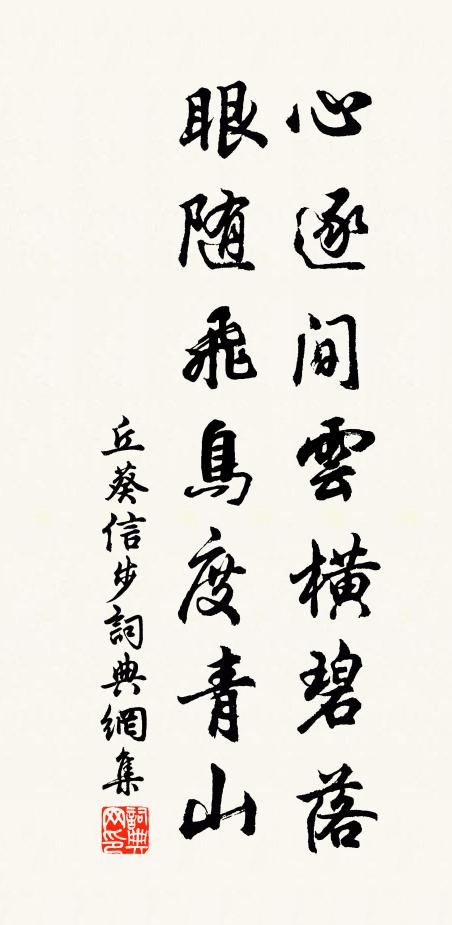 心逐间雲橫碧落
眼随飛鳥度青山
丘葵信步詞典網集
詞典网印